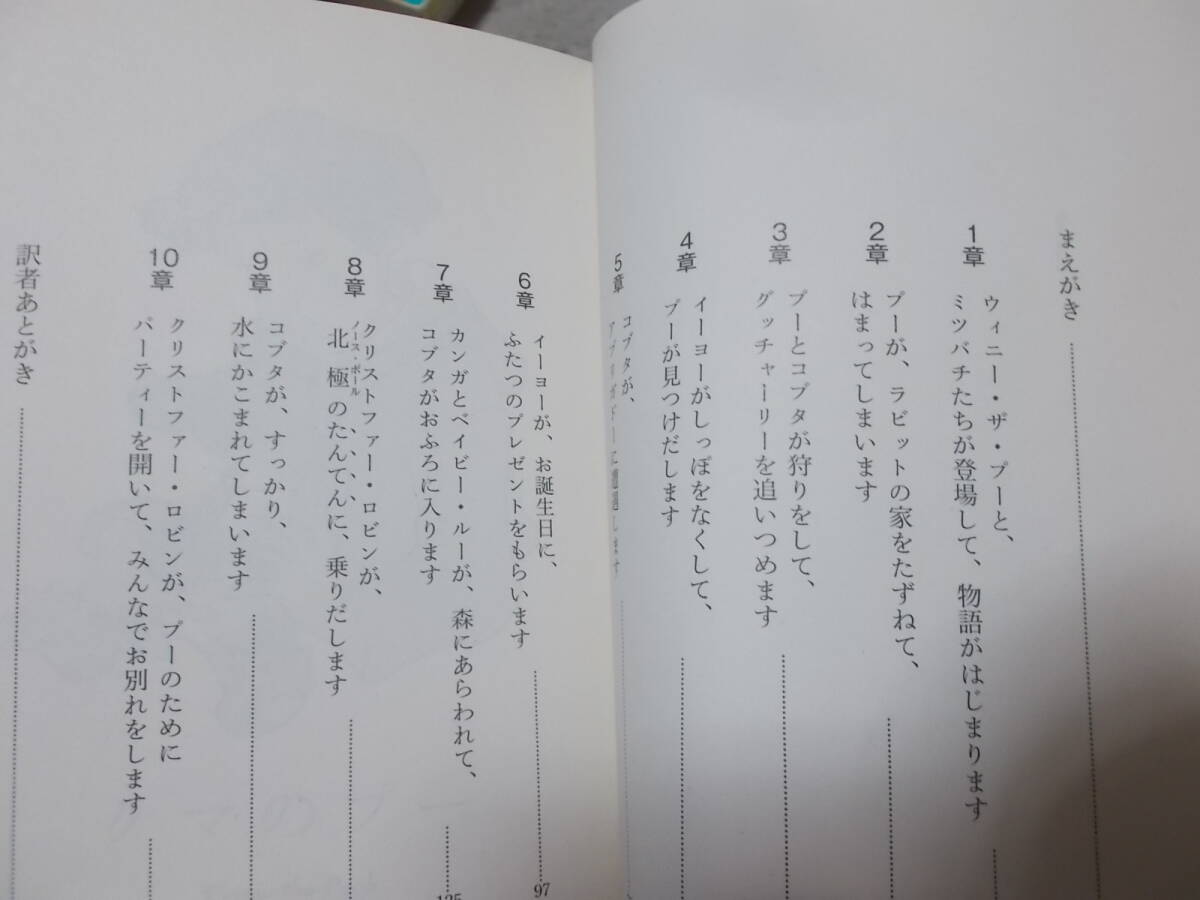 まえがき
1章
ウィニー・ザ・プーと、
ミツバチたちが登場して、物語がはじまります
2章
プーが、ラビットの家をたずねて、
はまってしまいます
3章
プーとコブタが狩りをして、
グッチャーリーを追いつめます
4章
イーヨーがしっぽをなくして、
プーが見つけだします
5章
コブタが、
に遭遇します
6章
イーヨーが、お誕生日に、
ふたつのプレゼントをもらいます
97
7章
カンガとベイビー・ルーが、森にあらわれて、
コブタがおふろに入ります
125
8章
クリストファー・ロビンが、
北極のたんてんに、乗りだします
ノース・ポール
9章
コブタが、すっかり、
水にかこまれてしまいます
10章
クリストファー・ロビンが、プーのために
パーティーを開いて、みんなでお別れをします
訳者あとがき